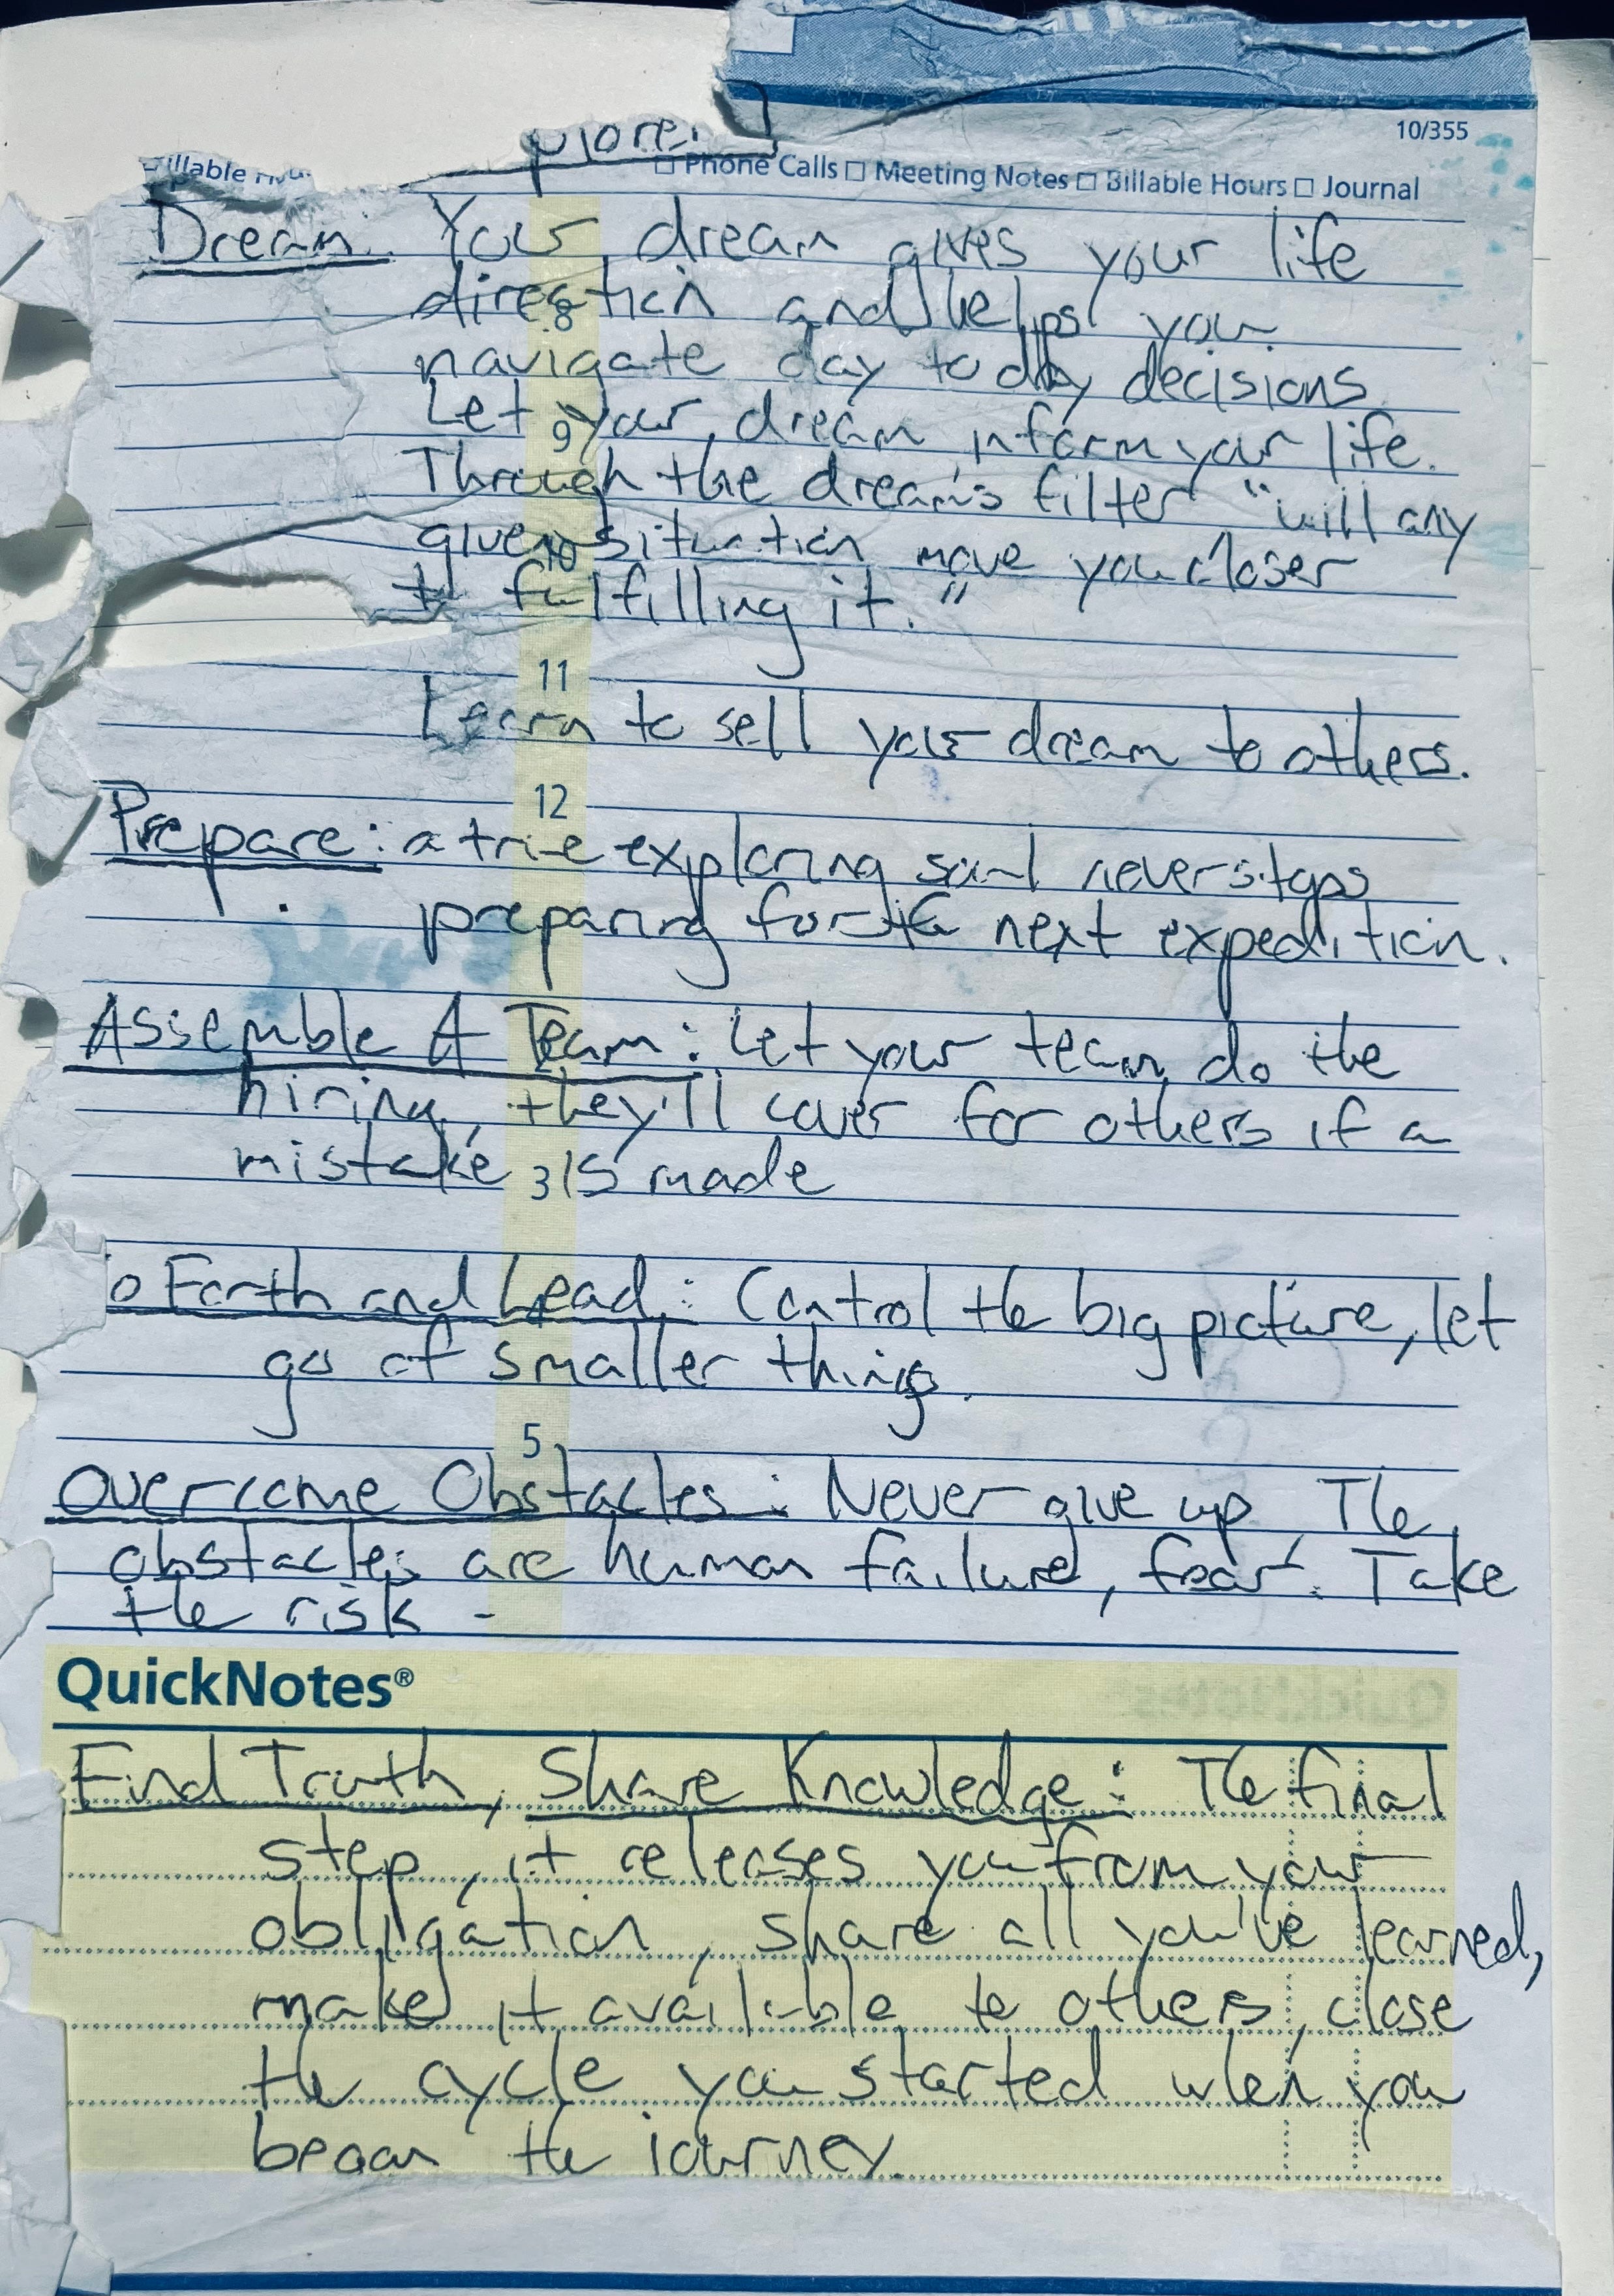 plore.
10/355
illable Hou
□ Phone Calls □ Meeting Notes □ Billable Hours □ Journal
Dream. Your dream gives your life
direction and helps you
8
navigate day to day decisions
Let your dream inform your life.
9
Through the dream's filter "will any
given situation move you closer
10
to fulfilling it."
11
Learn to sell your dream to others.
12
Prepare: a true exploring soul never stops
preparing for the next expedition.
Assemble A Team: Let your team do the
hiring, they'll cover for others if a
mistake is made
3
o Forth and Lead: Control the big picture, let
go of smaller things.
5
Overcome Obstacles: Never give up, The
obstacles are human failure, fear. Take
the risk -
QuickNotes®
Find Truth, Share Knowledge: The final
step, it releases you from your
obligation, share all you've learned,
make it available to others, close
the cycle you started when you
began the journey.